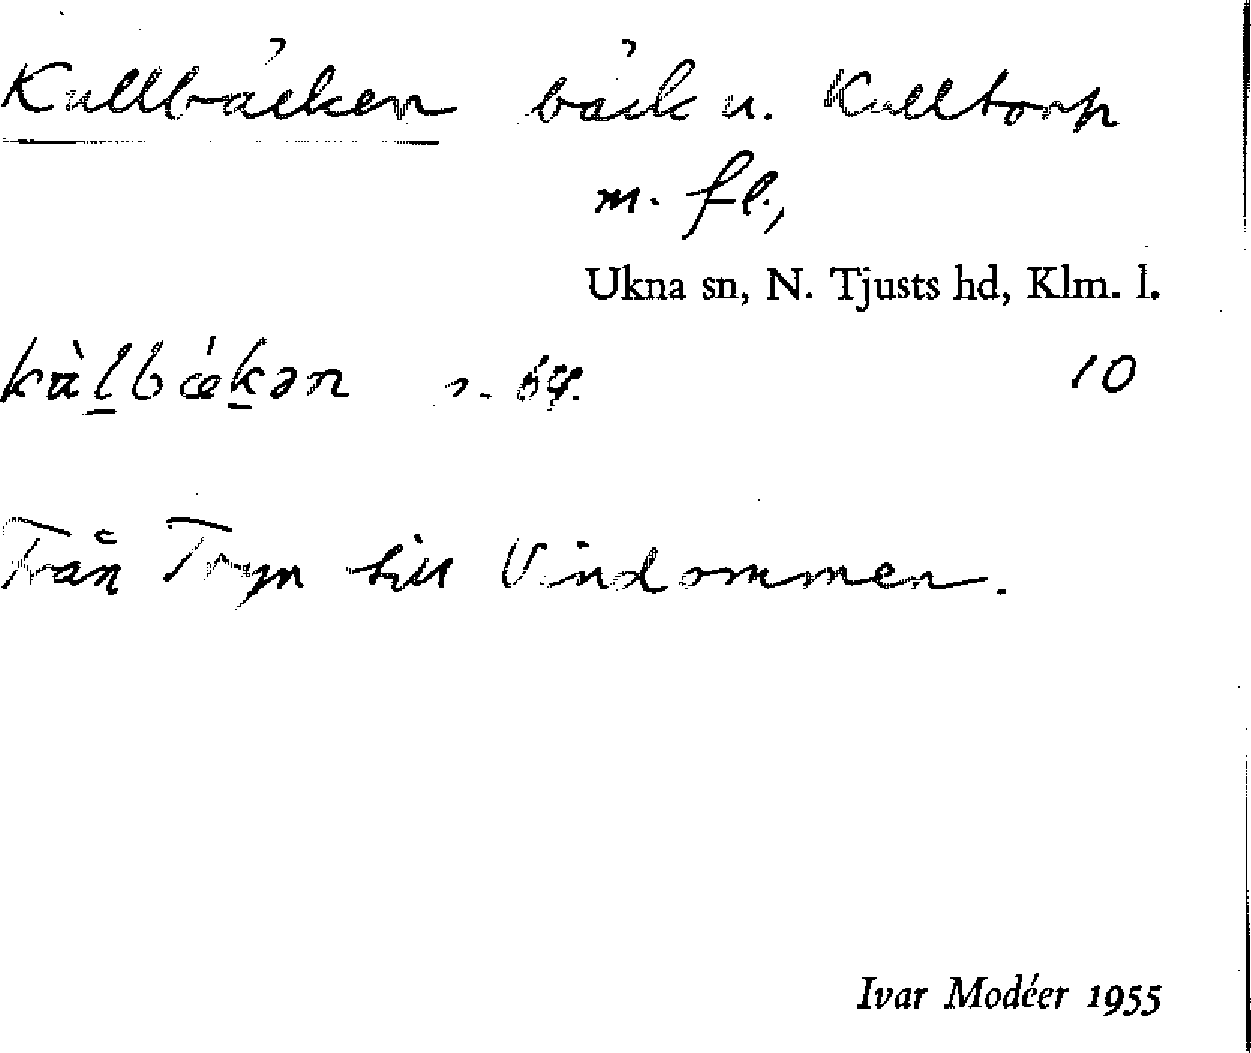 Kullbäcken bäck u. Kulltorp
m. fl.,
Ukna sn, N. Tjusts hd, Klm. l.
kùlbǽkən 10
Från Tryn till Vindommen.
Ivar Modéer 1955